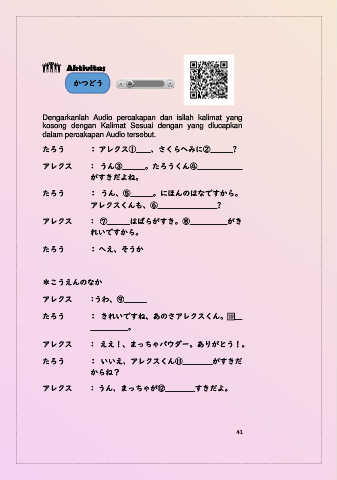 Aktivitas
かつどう
Dengarkanlah Audio percakapan dan isilah kalimat yang
kosong dengan Kalimat Sesuai dengan yang diucapkan
dalam percakapan Audio tersebut.
たろう ： アレクス①___、さくらへみに②_____?
アレクス ： うん③_____。たろうくん④__________
がすきだよね。
たろう ： うん、⑤_____。にほんのはなですから。
アレクスくんも、⑥_____________?
アレクス ： ⑦_____はばらがすき。⑧________がき
れいですから。
たろう ： へえ、そうか
＊こうえんのなか
アレクス ：うわ、⑨_____
たろう ： きれいですね、あのさアレクスくん。⑩__
________。
アレクス ： ええ！、まっちゃパウダー。ありがとう！。
たろう ： いいえ、アレクスくん⑪_______がすきだ
からね？
アレクス ： うん、まっちゃが⑫_______すきだよ。
41